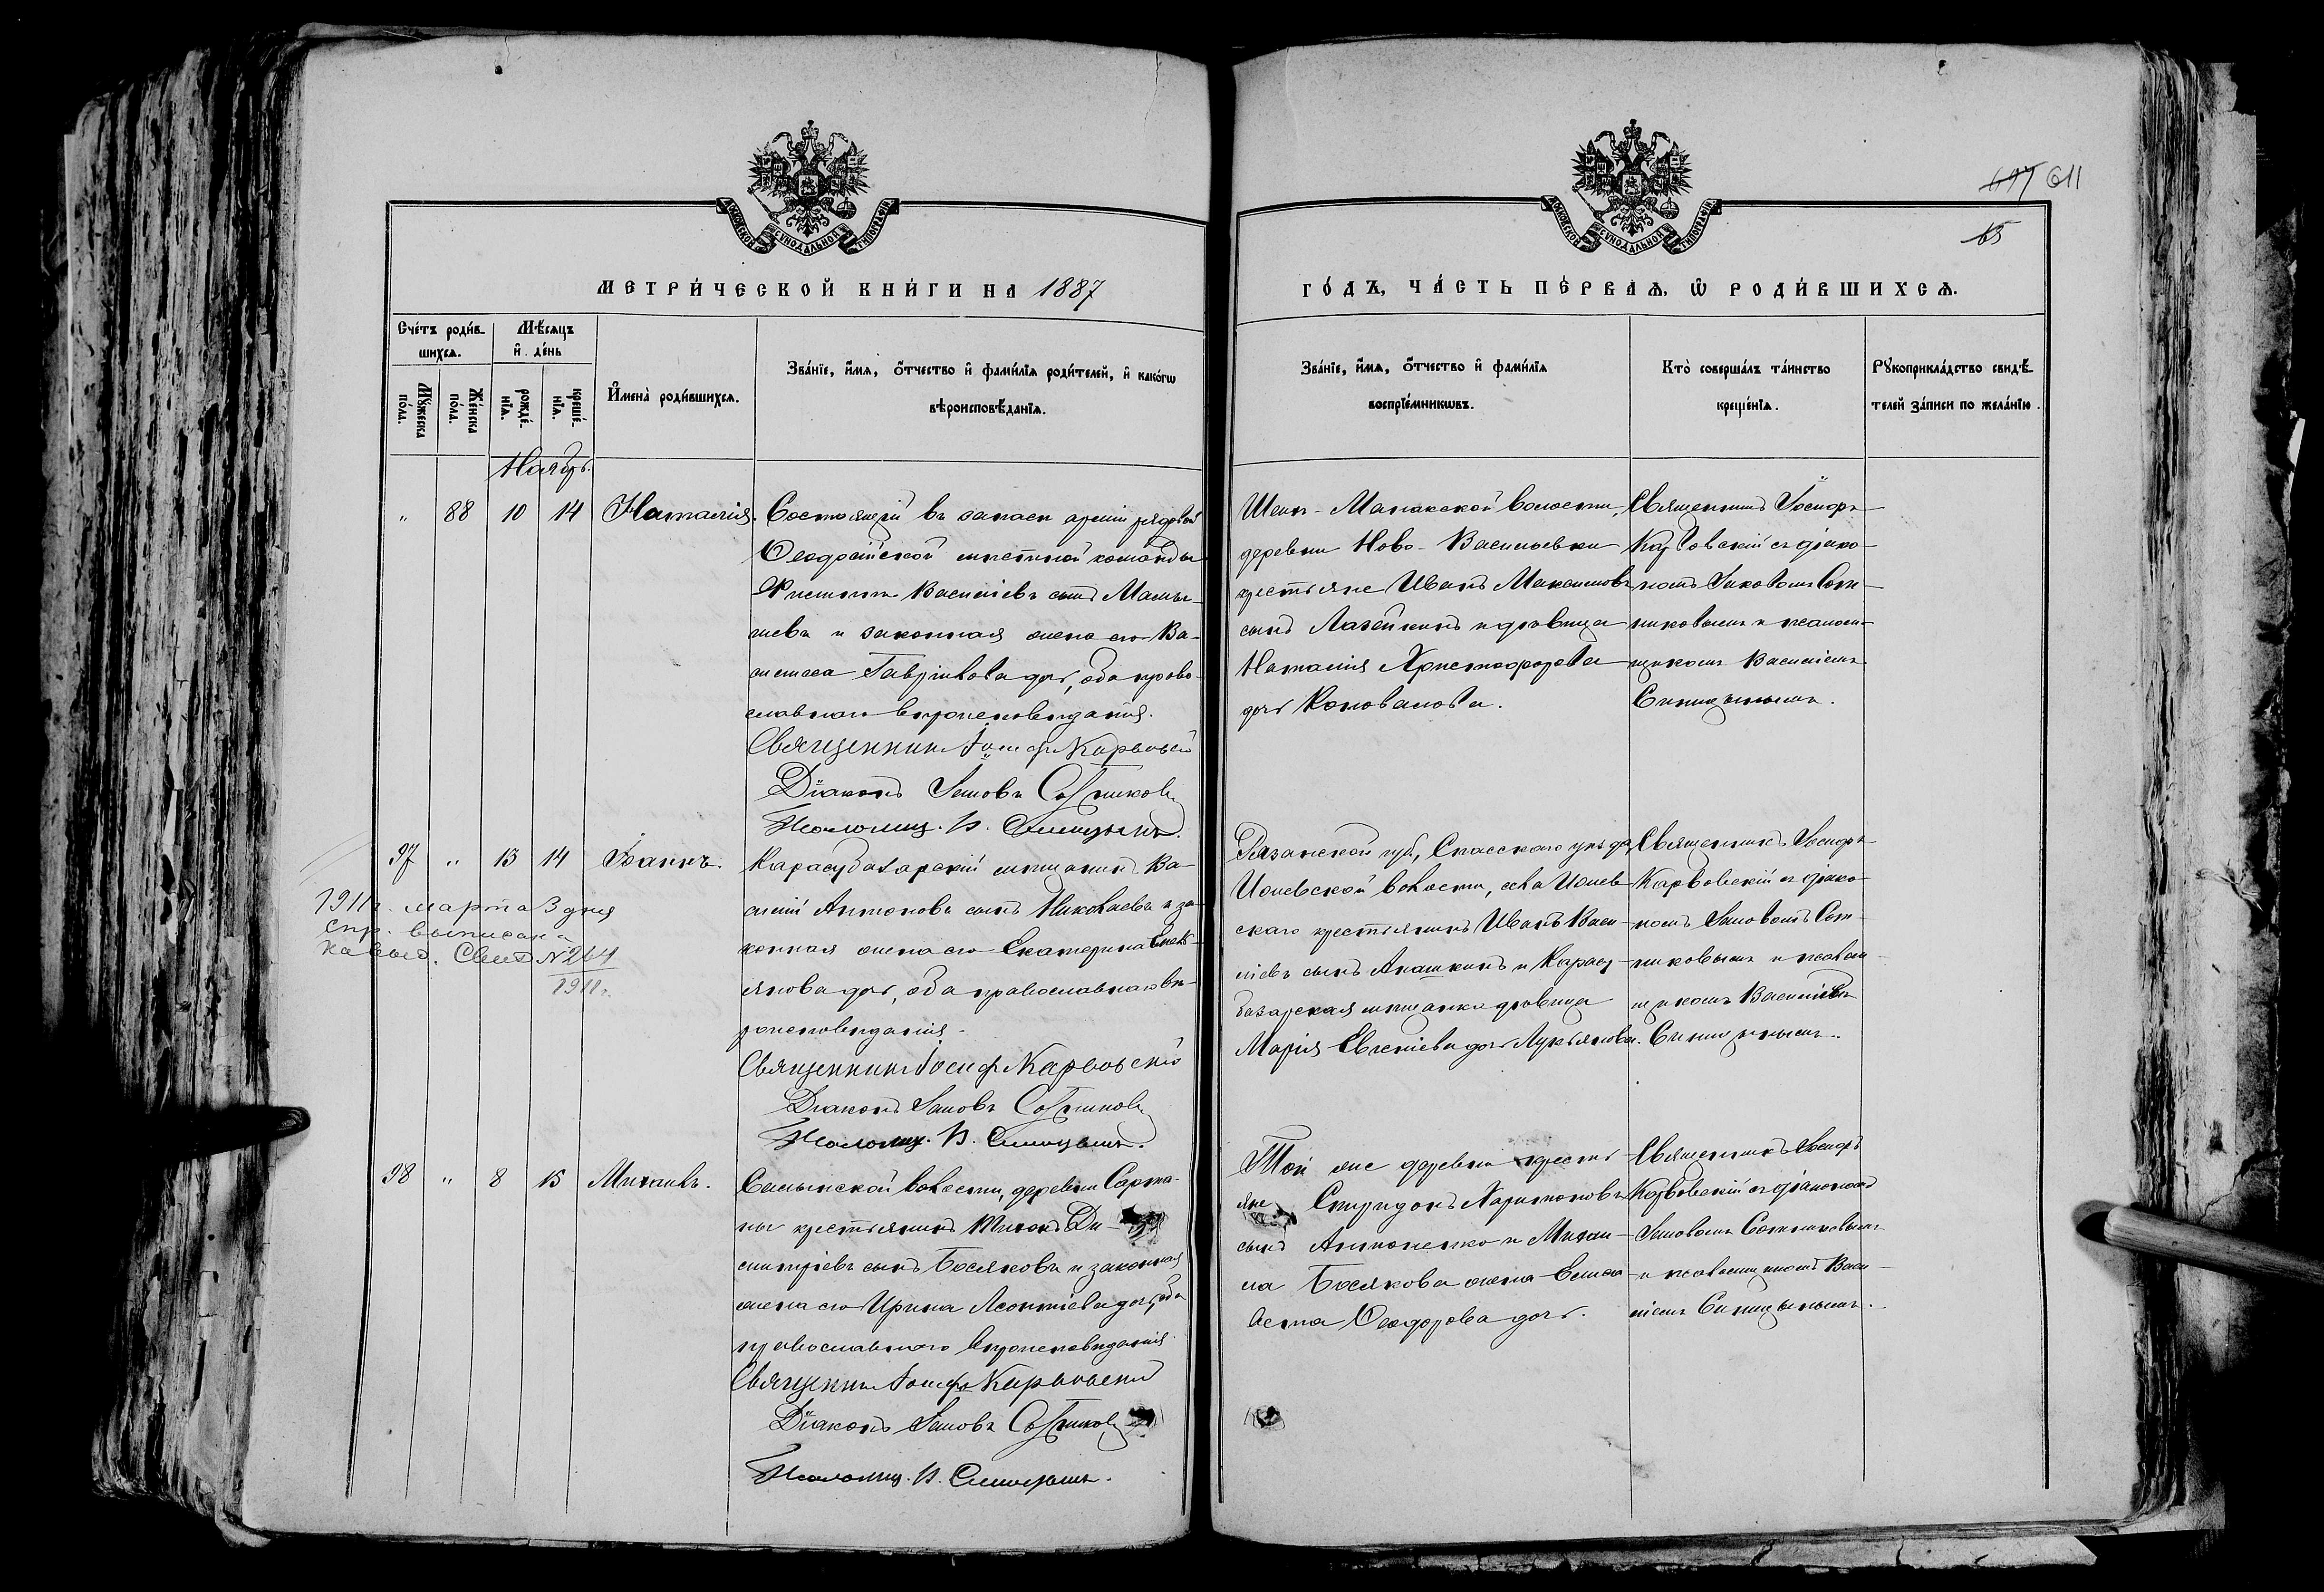 МОСКОВСКОЙ СѴНОДАЛЬНОЙ ТИПОГРАФІИ
МОСКОВСКОЙ СѴНОДАЛЬНОЙ ТИПОГРАФІИ
697 611
65
МЕТРИ́ЧЕСКОЙ КНИ́ГИ НА 1887
ГО́ДЪ, ЧА́СТЬ ПЕ́РВАѦ, Ѡ РОДИ́ВШИХСѦ.
Сче́тъ роди́в-
шихсѧ.
Мѣ́сѧцъ
и де́нь
Мꙋ́жеска
по́ла.
Же́нска
по́ла.
рожде́-
нїѧ.
креще́-
нїѧ.
И҆мена̀ роди́вшихсѧ.
Зва́нїе, и҆́мѧ, ѻ҆́тчество и҆ фами́лїѧ роди́телей, и҆ како́гѡ
вѣроисповѣ́данїѧ.
Зва́нїе, и҆́мѧ, ѻ҆́тчество и҆ фами́лїѧ
воспрїе́мникѡвъ.
Кто̀ соверша́лъ та́инство
креще́нїѧ.
Рꙋкоприкла́дство свидѣ́-
телей за́писи по жела́нїю.
Ноябрь.
" 88 10 14 Наталія.
Состоящій въ запасѣ арміи рядовой
Ѳеодосійской мѣстной команды
Василіевъ сынъ
и законная жена его Ва-
силиса Гаврилова дочь, оба право-
славнаго вѣроисповѣданія.
Священникъ Іосифъ Карвовскій
Діаконъ Іаковъ Сотниковъ
Псаломщ. В. Синицынъ.
волости,
деревни Ново-Васильевки
крестьяне Иванъ Максимовъ
сынъ Лазейкинъ и дѣвица
Наталія Христофорова
дочь Коновалова.
Священникъ Іосифъ
Карвовскій съ діако-
номъ Іаковомъ Сот-
никовымъ и псалом-
щикомъ Василіемъ
Синицынымъ.
97 " 13 14 Іоаннъ.
1911 г. марта 3 дня
спр. выписана
на выд. Свид. № 264
1911 г.
Карасубазарскій мѣщанинъ Ва-
силій Антоновъ сынъ Николаевъ и за-
конная жена его Екатерина Емель-
янова дочь, оба православнаго вѣ-
роисповѣданія.
Священникъ Іосифъ Карвовскій
Діаконъ Іаковъ Сотниковъ
Псаломщ. В. Синицынъ.
Рязанской губ., Спасскаго уѣзда,
Ижевской волости, села Ижев-
скаго крестьянинъ Иванъ Васи-
ліевъ сынъ Апашкинъ и Карасу-
базарская мѣщанка дѣвица
Марія Евгеніева дочь Лукьянова.
Священникъ Іосифъ
Карвовскій съ діако-
номъ Іаковомъ Сот-
никовымъ и псалом-
щикомъ Василіемъ
Синицынымъ.
98 " 8 15 Михаилъ.
волости, деревни Сарта-
ны крестьянинъ Тихонъ Ди-
митріевъ сынъ Босяковъ и законная
жена его Ирина Леонтіева дочь, оба
православнаго вѣроисповѣданія.
Священникъ Іосифъ Карвовскій
Діаконъ Іаковъ Сотниковъ
Псаломщ. В. Синицынъ.
Той же деревни кресть-
яне Спиридонъ Харитоновъ
сынъ Антоненко и Михаи-
ла Босякова жена
Ѳеодорова дочь.
Священникъ Іосифъ
Карвовскій съ діакономъ
Іаковомъ Сотниковымъ
и псаломщикомъ Васи-
ліемъ Синицынымъ.